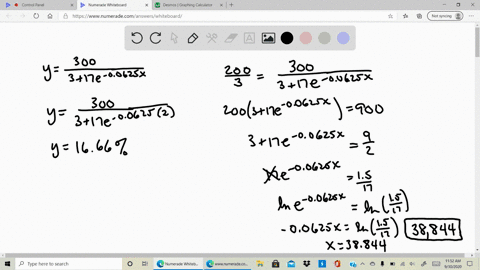 Control Panel
Numerade Whiteboard
Desmos | Graphing Calculator
https://www.numerade.com/answers/whiteboard/
Not syncing
y = 300 / (3+17e^-0.0625x)
y = 300 / (3+17e^-0.0625(2))
y = 16.66%
200/3 = 300 / (3+17e^-0.0625x)
200(3+17e^-0.0625x) = 900
3+17e^-0.0625x = 9/2
e^-0.0625x = 1.5/17
ln e^-0.0625x = ln(1.5/17)
-0.0625x = ln(1.5/17)
38,844
x = 38.844
Type here to search
Numerade Whiteb...
www.numerade.co...
11:02 AM